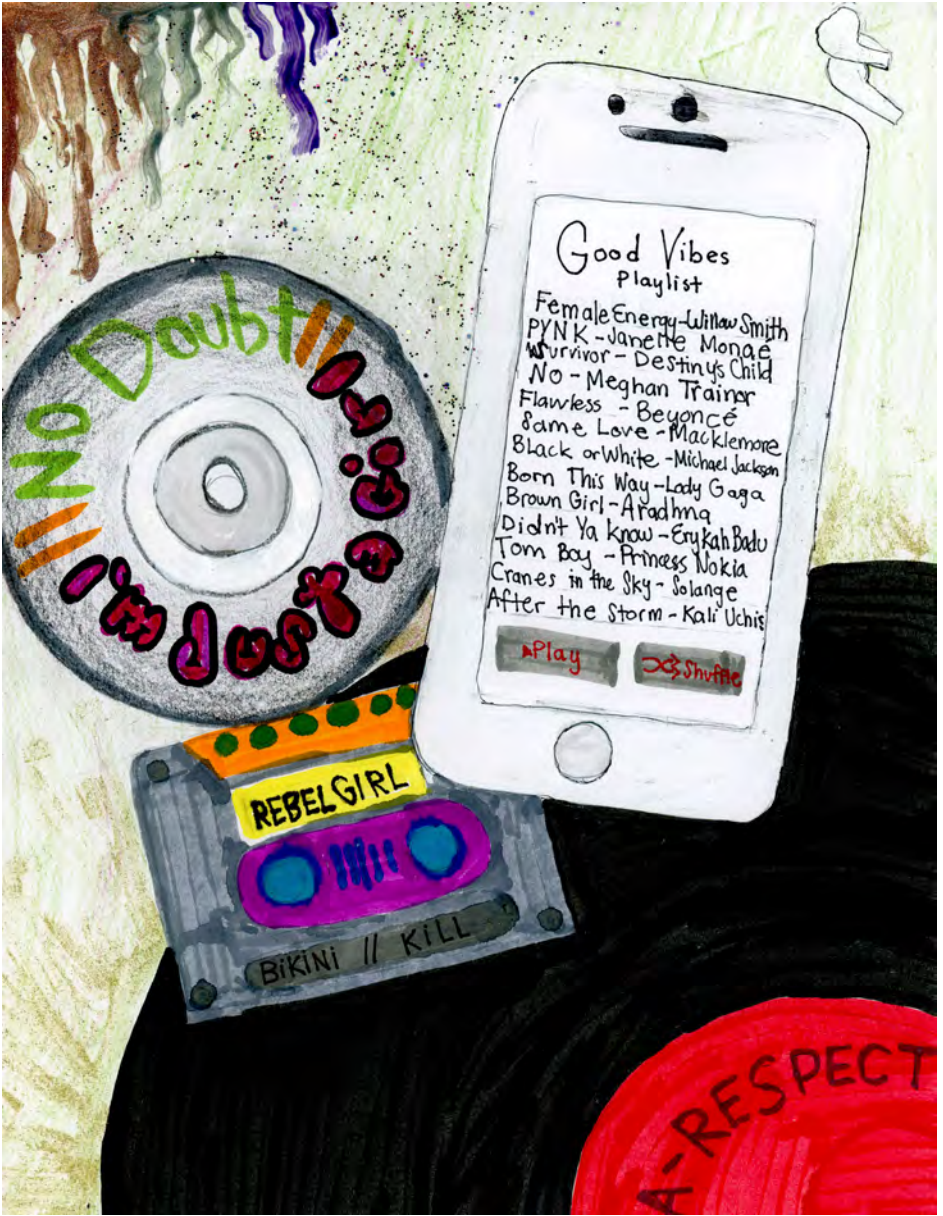 NO Doubt
I'm Just a Girl
Good Vibes
Playlist
Female Energy-Willow Smith
PYNK-Janelle Monaé
Survivor-Destiny's Child
No-Meghan Trainor
Flawless -Beyoncé
Same Love-Macklemore
Black or White-Michael Jackson
Born This Way-Lady Gaga
Brown Girl-Aradhna
Didn't Ya Know-Erykah Badu
Tom Boy -Princess Nokia
Cranes in the Sky-Solange
After the Storm-Kali Uchis
Play
Shuffle
REBEL GIRL
BiKiNi // KiLL
A-RESPECT